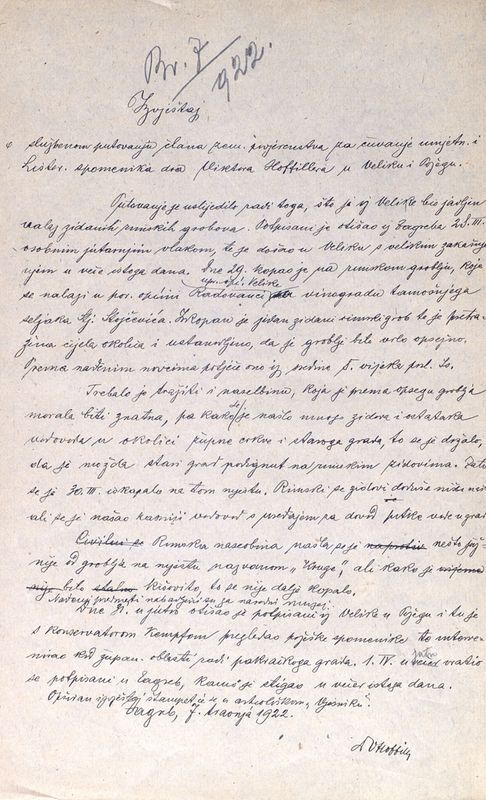 Br. 7/922.
Izvještaj
o službenom putovanju člana zem. povjerenstva za čuvanje umjetn. i
histor. spomenika dra Viktora Hoffillera u Veliku i Požegu.
Putovanje je uslijedilo radi toga, što je iz Velike bio javljen
nalaz zidanih rimskih grobova. Potpisani je otišao iz Zagreba 28. III.
osobnim jutarnjim vlakom, te je došao u Veliku s velikim zakašnje
njem u veče istoga dana. Dne 29. kopao je na rimskom groblju, koje
se nalazi u por. općini Radovanci upr. opć. Velike vinogradu tamošnjega
seljaka Gj. Stojčevića. Iskopan je jedan zidani rimski grob te je pretra-
žena cijela okolica i ustanovljeno, da je groblje bilo vrlo opsežno.
Prema nađenim novcima potječe ono iz 4. vijeka posl. Is.
Trebalo je tražiti i naselbinu, koja je prema opsegu groblja
morala biti znatna, pa kako se je našlo mnogo zidova i ostataka
vodovoda u okolici župne crkve i staroga grada, to se je držalo,
da je možda stari grad podignut na rimskim zidovima. Zato
se je 30. III. iskapalo na tom mjestu. Rimski se zidovi doduše nisu našli
ali se je našao kasniji vodovod s uređajem za dovod pitke vode u grad.
Civilni se Rimska naseobina našla se je na protiv nešto juž-
nije od groblja na mjestu nazvanom „Kruge“, ali kako je vrijeme
nije bilo stalno kišovito, to se nije dalje kopalo.
Nađeni predmeti nabavljeni su za narodni muzej.
Dne 31. ujutro otišao je potpisani iz Velike u Požegu i tu je
s konservatorom Kempfom pregledao požeške spomenike te interve-
nirao kod župan. oblasti radi pakračkoga grada. 1. IV. u jutro vratio
se potpisani u Zagreb, kamo je stigao u večer istoga dana.
Opširan izvještaj štampat će se u arheološkom „Vjesniku“.
Zagreb, 7. travnja 1922.
Dr VHoffiller